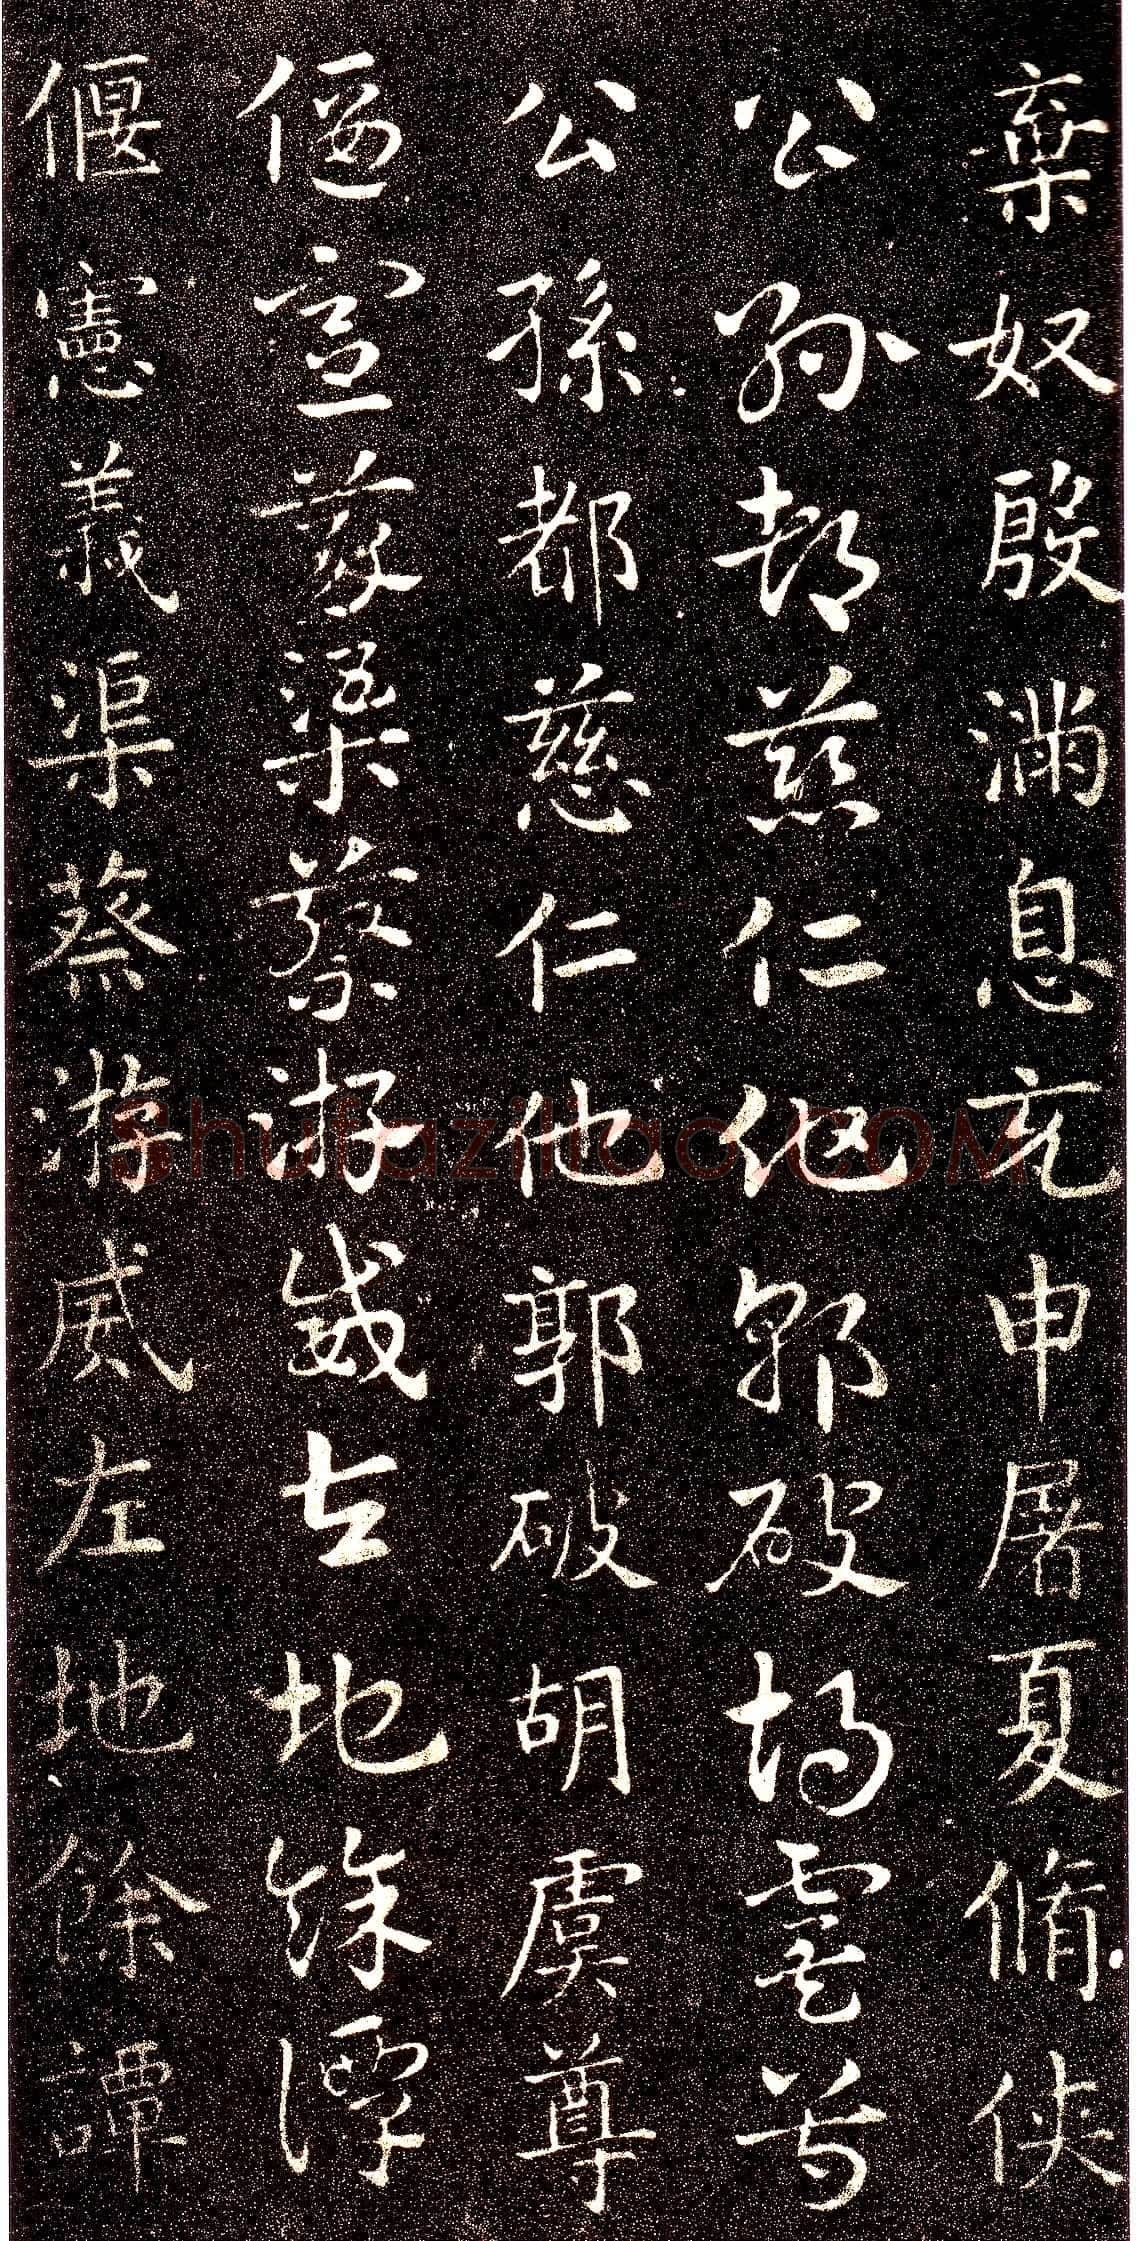 棄奴殷滿息充申屠夏脩俠
公孫都慈仁他郭破胡虞尊
公孫都慈仁他郭破胡虞尊
偃憲義渠蔡游威左地餘譚
偃憲義渠蔡游威左地餘譚
Shufaziliao.COM